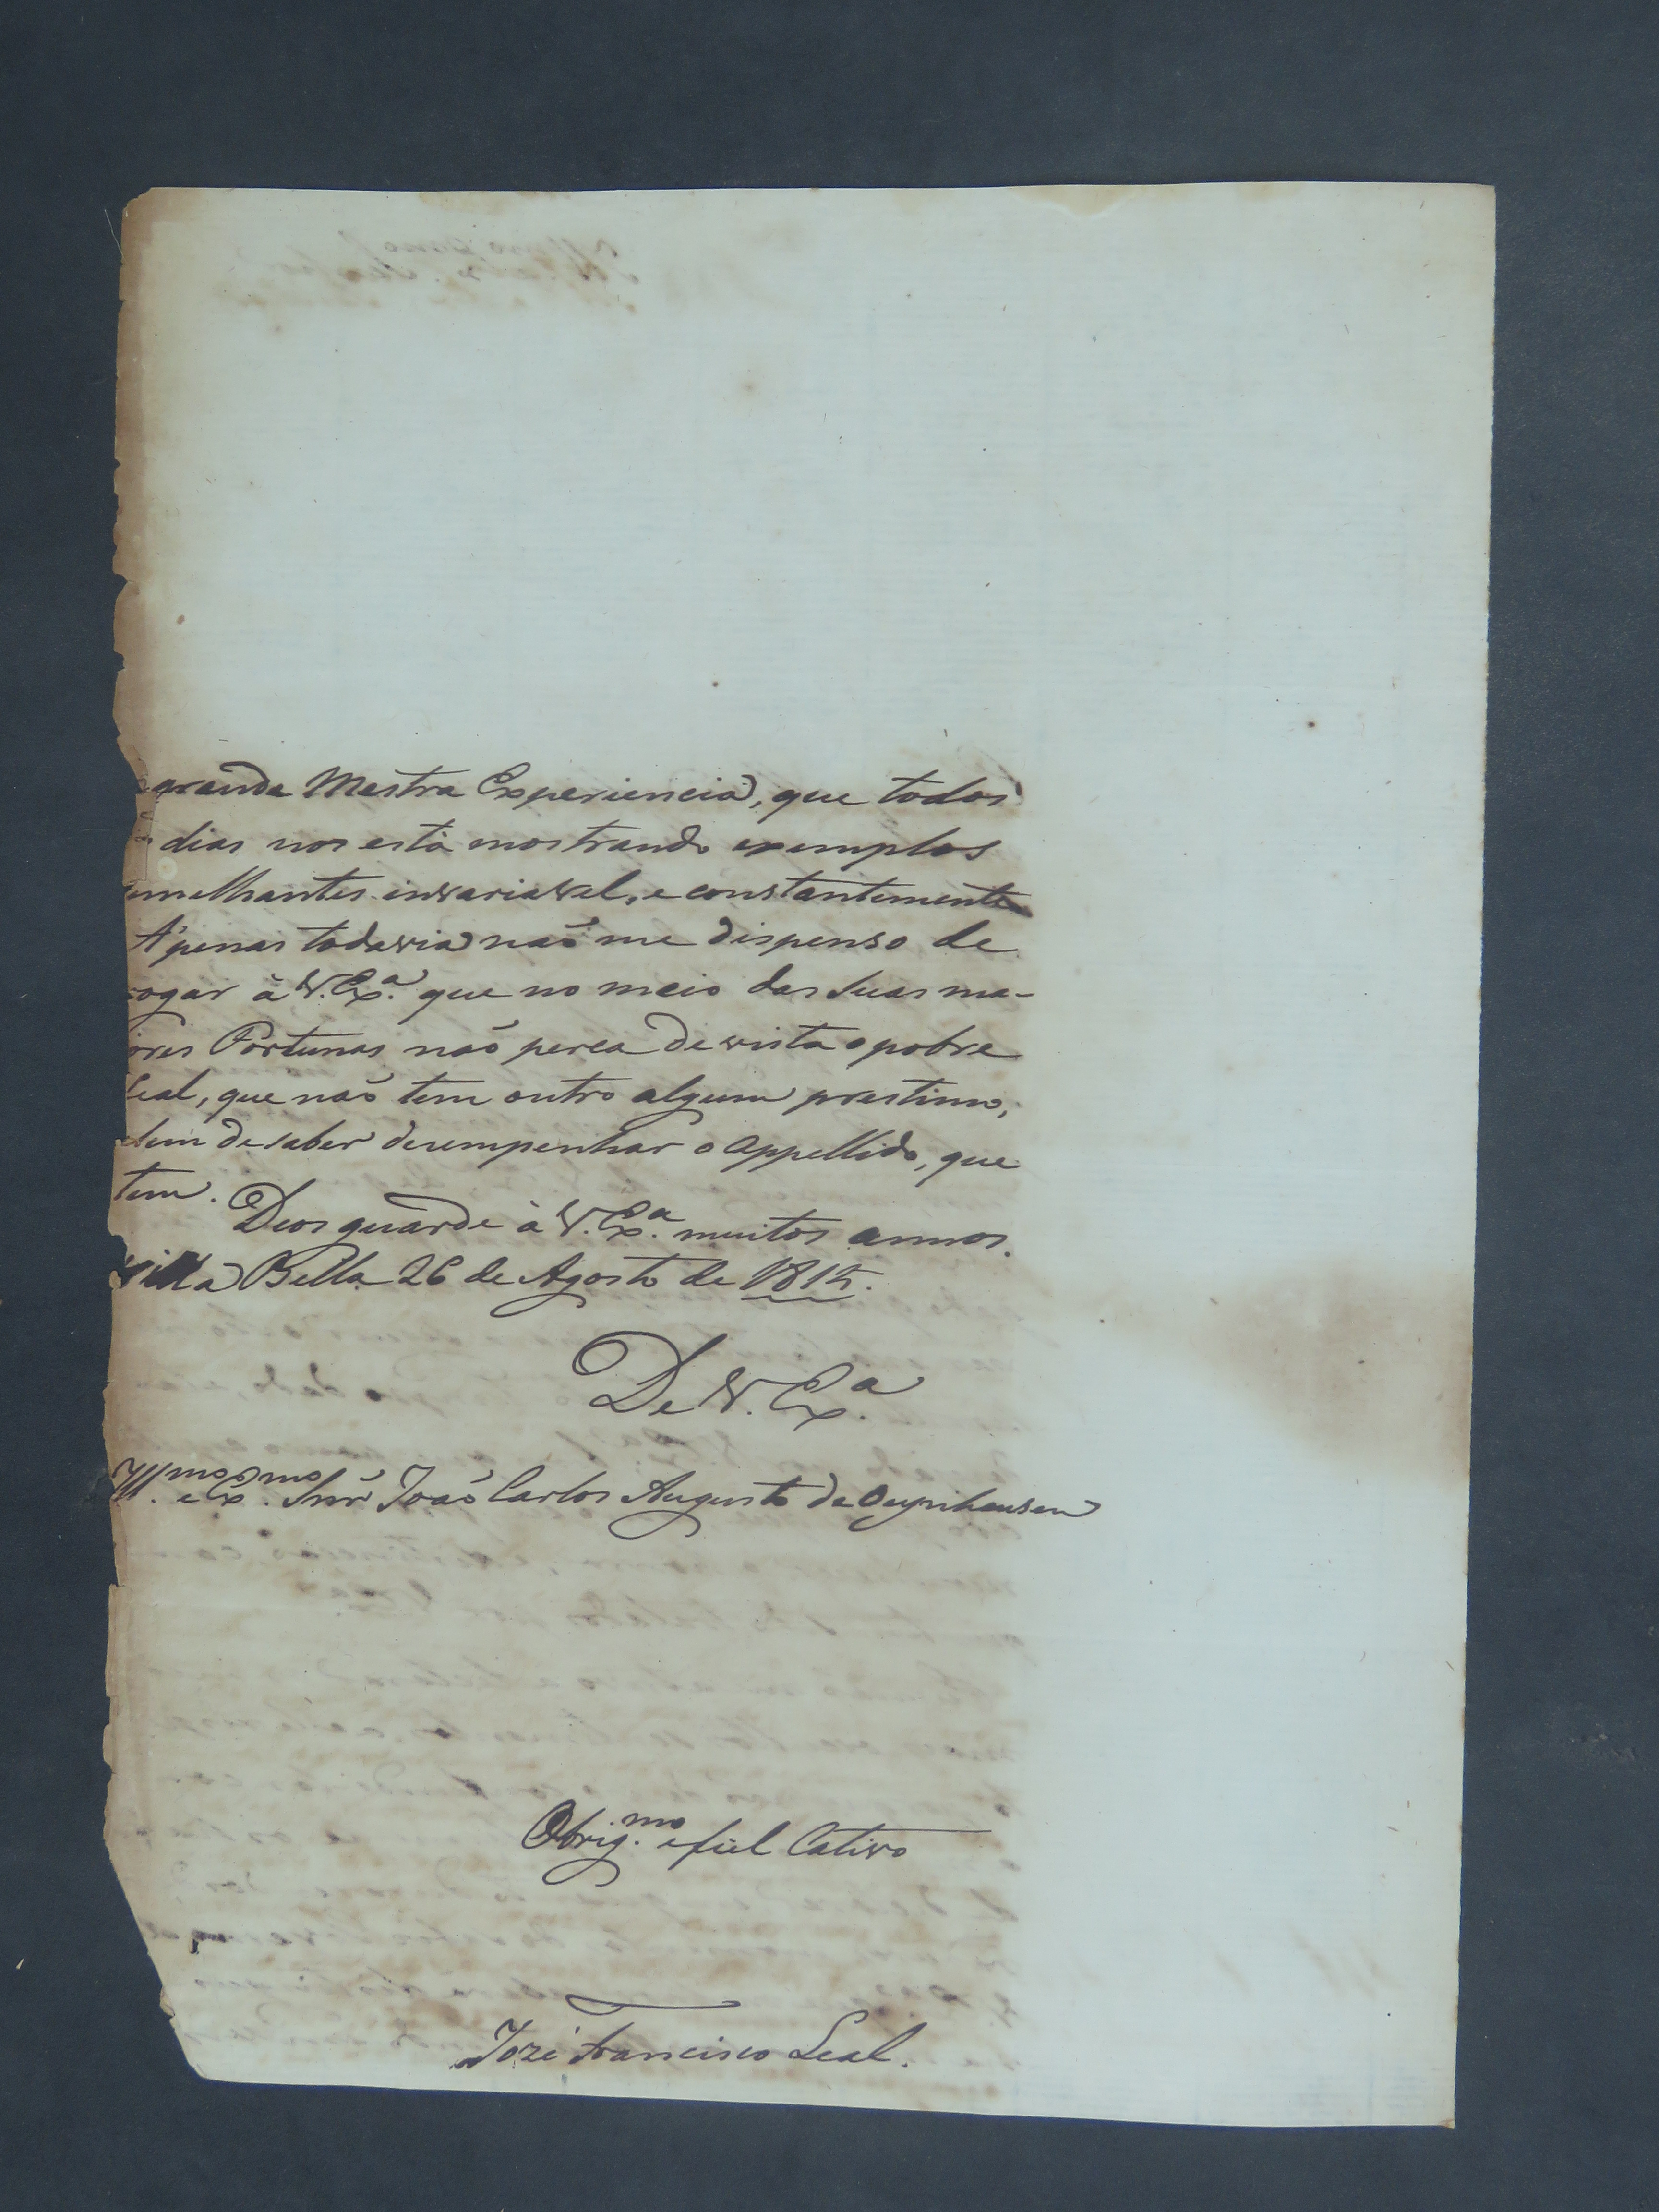 grande Mestra Experiencia, que todos
dias nos está mostrando exemplos
emelhantes invariavel, e constantemente
Apenas todavia naõ me dispenso de
rogar à V. Ex.ª que no meio das suas ma-
ores Fortunas naõ perca de vista o pobre
Leal, que naõ tem outro algum prestimo,
alem de saber desempenhar o appellido, que
tem.
Deos guarde à V. Ex.ª muitos annos.
Villa Bella 26 de Agosto de 1815.
De V. Ex.ª
Ill.mo e Ex.mo Snr̃ Joaõ Carlos Augusto de Oeynhausen
Obrig.mo e fiel Cativo
Jozé Francisco Leal.